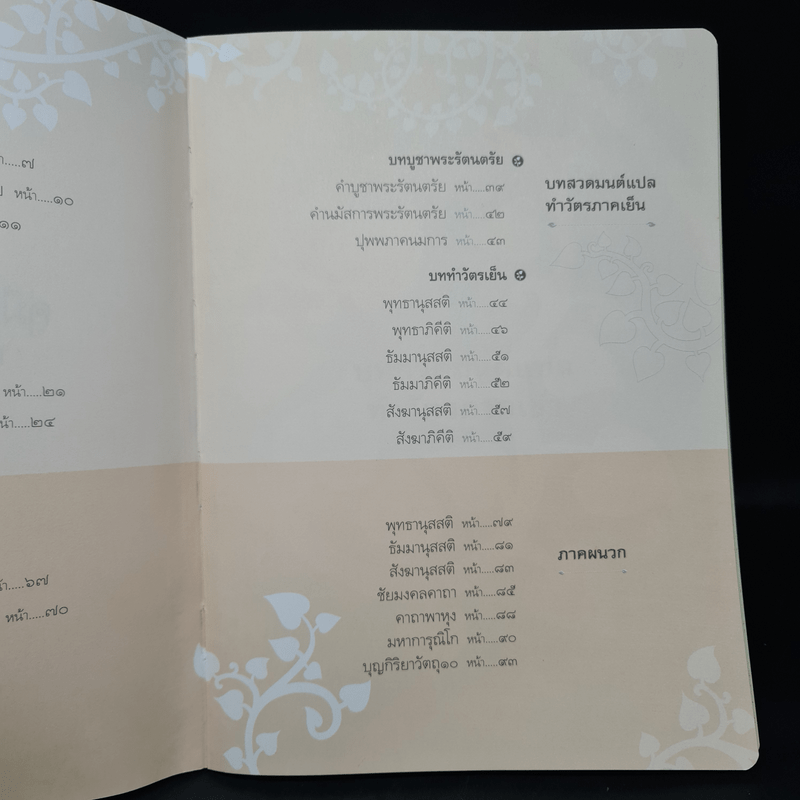 หน้า.....๗
หน้า.....๑๐
๑๑
หน้า.....๒๑
หน้า.....๒๔
หน้า.....๖๗
หน้า.....๗๐
บทสวดมนต์แปล
ทำวัตรภาคเย็น
บทบูชาพระรัตนตรัย
คำบูชาพระรัตนตรัย หน้า.....๓๙
คำนมัสการพระรัตนตรัย หน้า.....๔๒
ปุพพภาคนมการ หน้า.....๔๓
บททำวัตรเย็น
พุทธานุสสติ หน้า.....๔๔
พุทธาภิคีติ หน้า.....๔๖
ธัมมานุสสติ หน้า.....๕๑
ธัมมาภิคีติ หน้า.....๕๒
สังฆานุสสติ หน้า.....๕๗
สังฆาภิคีติ หน้า.....๕๙
ภาคผนวก
พุทธานุสสติ หน้า.....๗๙
ธัมมานุสสติ หน้า.....๘๑
สังฆานุสสติ หน้า.....๘๓
ชัยมงคลคาถา หน้า.....๘๕
คาถาพาหุง หน้า.....๘๘
มหาการุณิโก หน้า.....๙๐
บุญกิริยาวัตถุ๑๐ หน้า.....๙๓